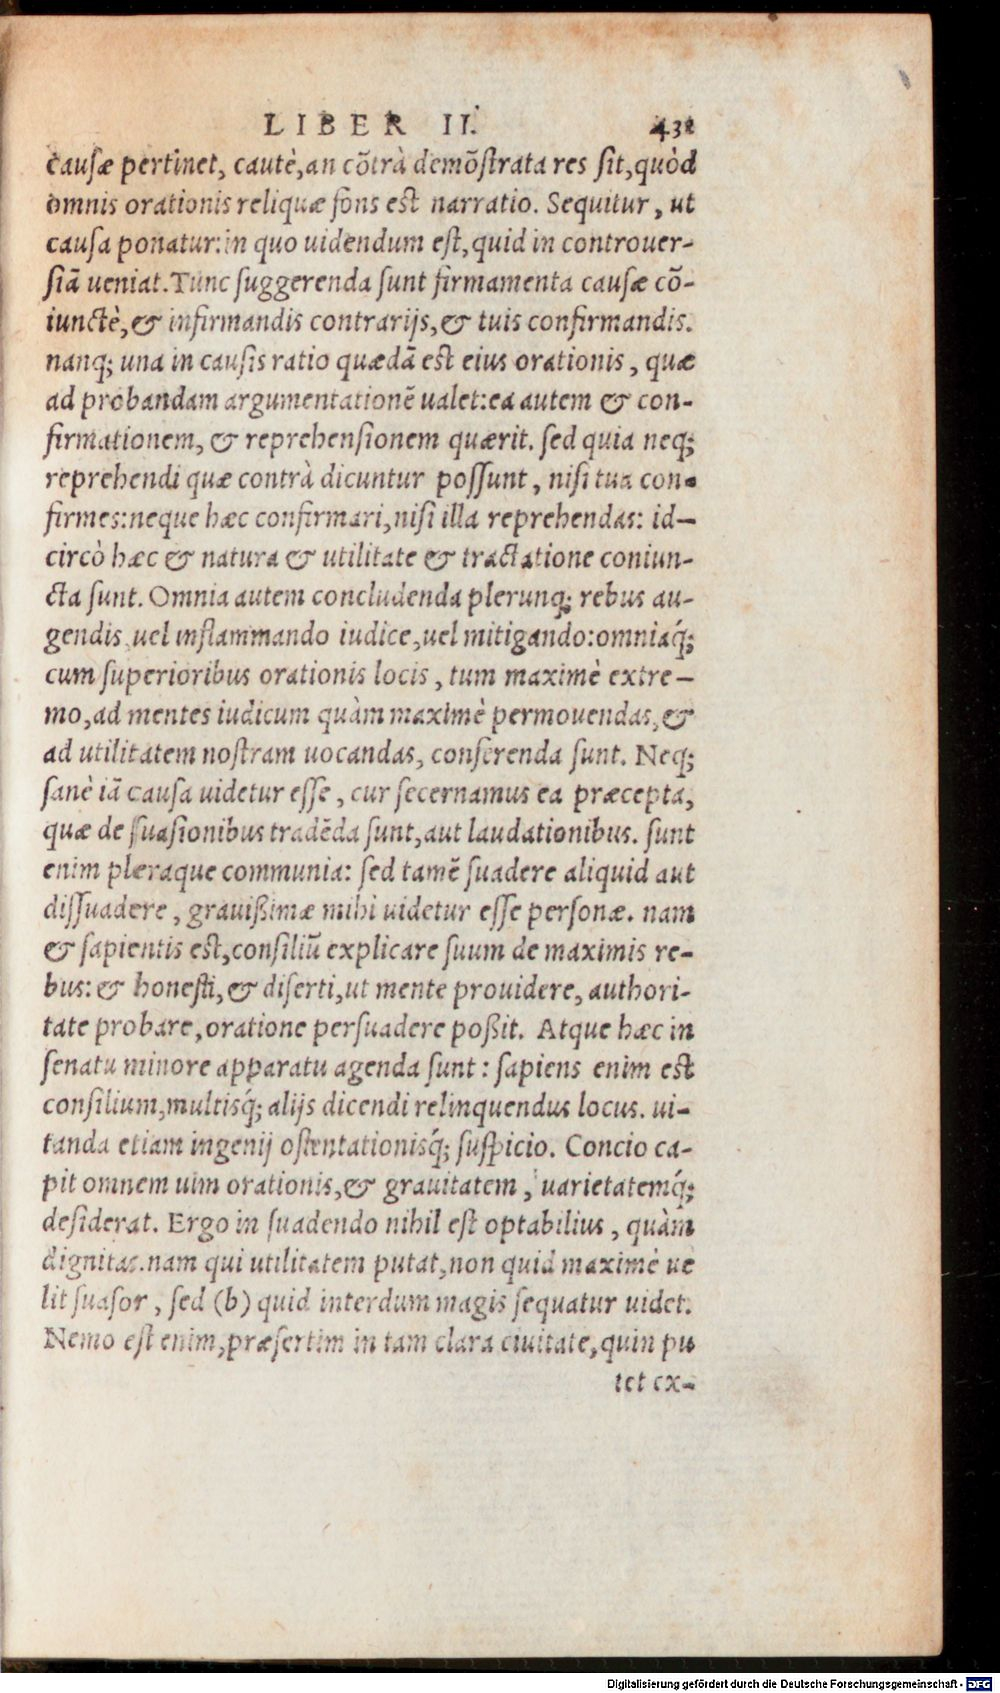 LIBER II. 431
causæ pertinet, cautè, an cõtrà demõstrata res sit, quòd
omnis orationis reliquæ fons est narratio. Sequitur, ut
causa ponatur: in quo uidendum est, quid in controuer-
siã ueniat. Tunc suggerenda sunt firmamenta causæ cõ-
iunctè, & infirmandis contrarijs, & tuis confirmandis.
nanq; una in causis ratio quædã est eius orationis, quæ
ad probandam argumentationẽ ualet: ea autem & con-
firmationem, & reprehensionem quærit. sed quia neq;
reprehendi quæ contrà dicuntur possunt, nisi tua con-
firmes: neque hæc confirmari, nisi illa reprehendas: id-
circò hæc & natura & utilitate & tractatione coniun-
cta sunt. Omnia autem concludenda plerunq; rebus au-
gendis, uel inflammando iudice, uel mitigando: omniaq́;
cum superioribus orationis locis, tum maximè extre-
mo, ad mentes iudicum quàm maximè permouendas, &
ad utilitatem nostram uocandas, conferenda sunt. Neq;
sanè iã causa uidetur esse, cur secernamus ea præcepta,
quæ de suasionibus tradẽda sunt, aut laudationibus. sunt
enim pleraque communia: sed tamẽ suadere aliquid aut
dissuadere, grauißimæ mihi uidetur esse personæ. nam
& sapientis est, consiliũ explicare suum de maximis re-
bus: & honesti, & diserti, ut mente prouidere, authori-
tate probare, oratione persuadere poßit. Atque hæc in
senatu minore apparatu agenda sunt: sapiens enim est
consilium, multisq́; alijs dicendi relinquendus locus. ui-
tanda etiam ingenij ostentationisq́; suspicio. Concio ca-
pit omnem uim orationis, & grauitatem, uarietatemq́;
desiderat. Ergo in suadendo nihil est optabilius, quàm
dignitas. nam qui utilitatem putat, non quid maximè ue
lit suasor, sed (b) quid interdum magis sequatur uidet.
Nemo est enim, præsertim in tam clara ciuitate, quin pu
tet ex-
Digitalisierung gefördert durch die Deutsche Forschungsgemeinschaft - DFG